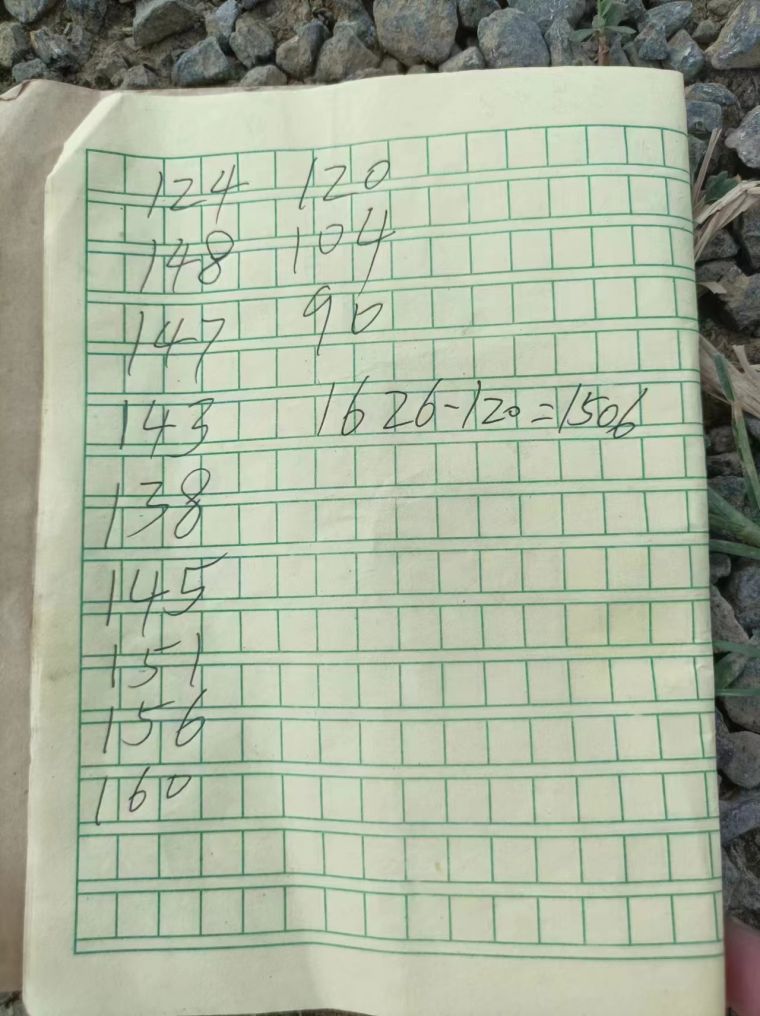 124 120
148 104
147 90
143 1626-120=1506
138
145
151
156
160